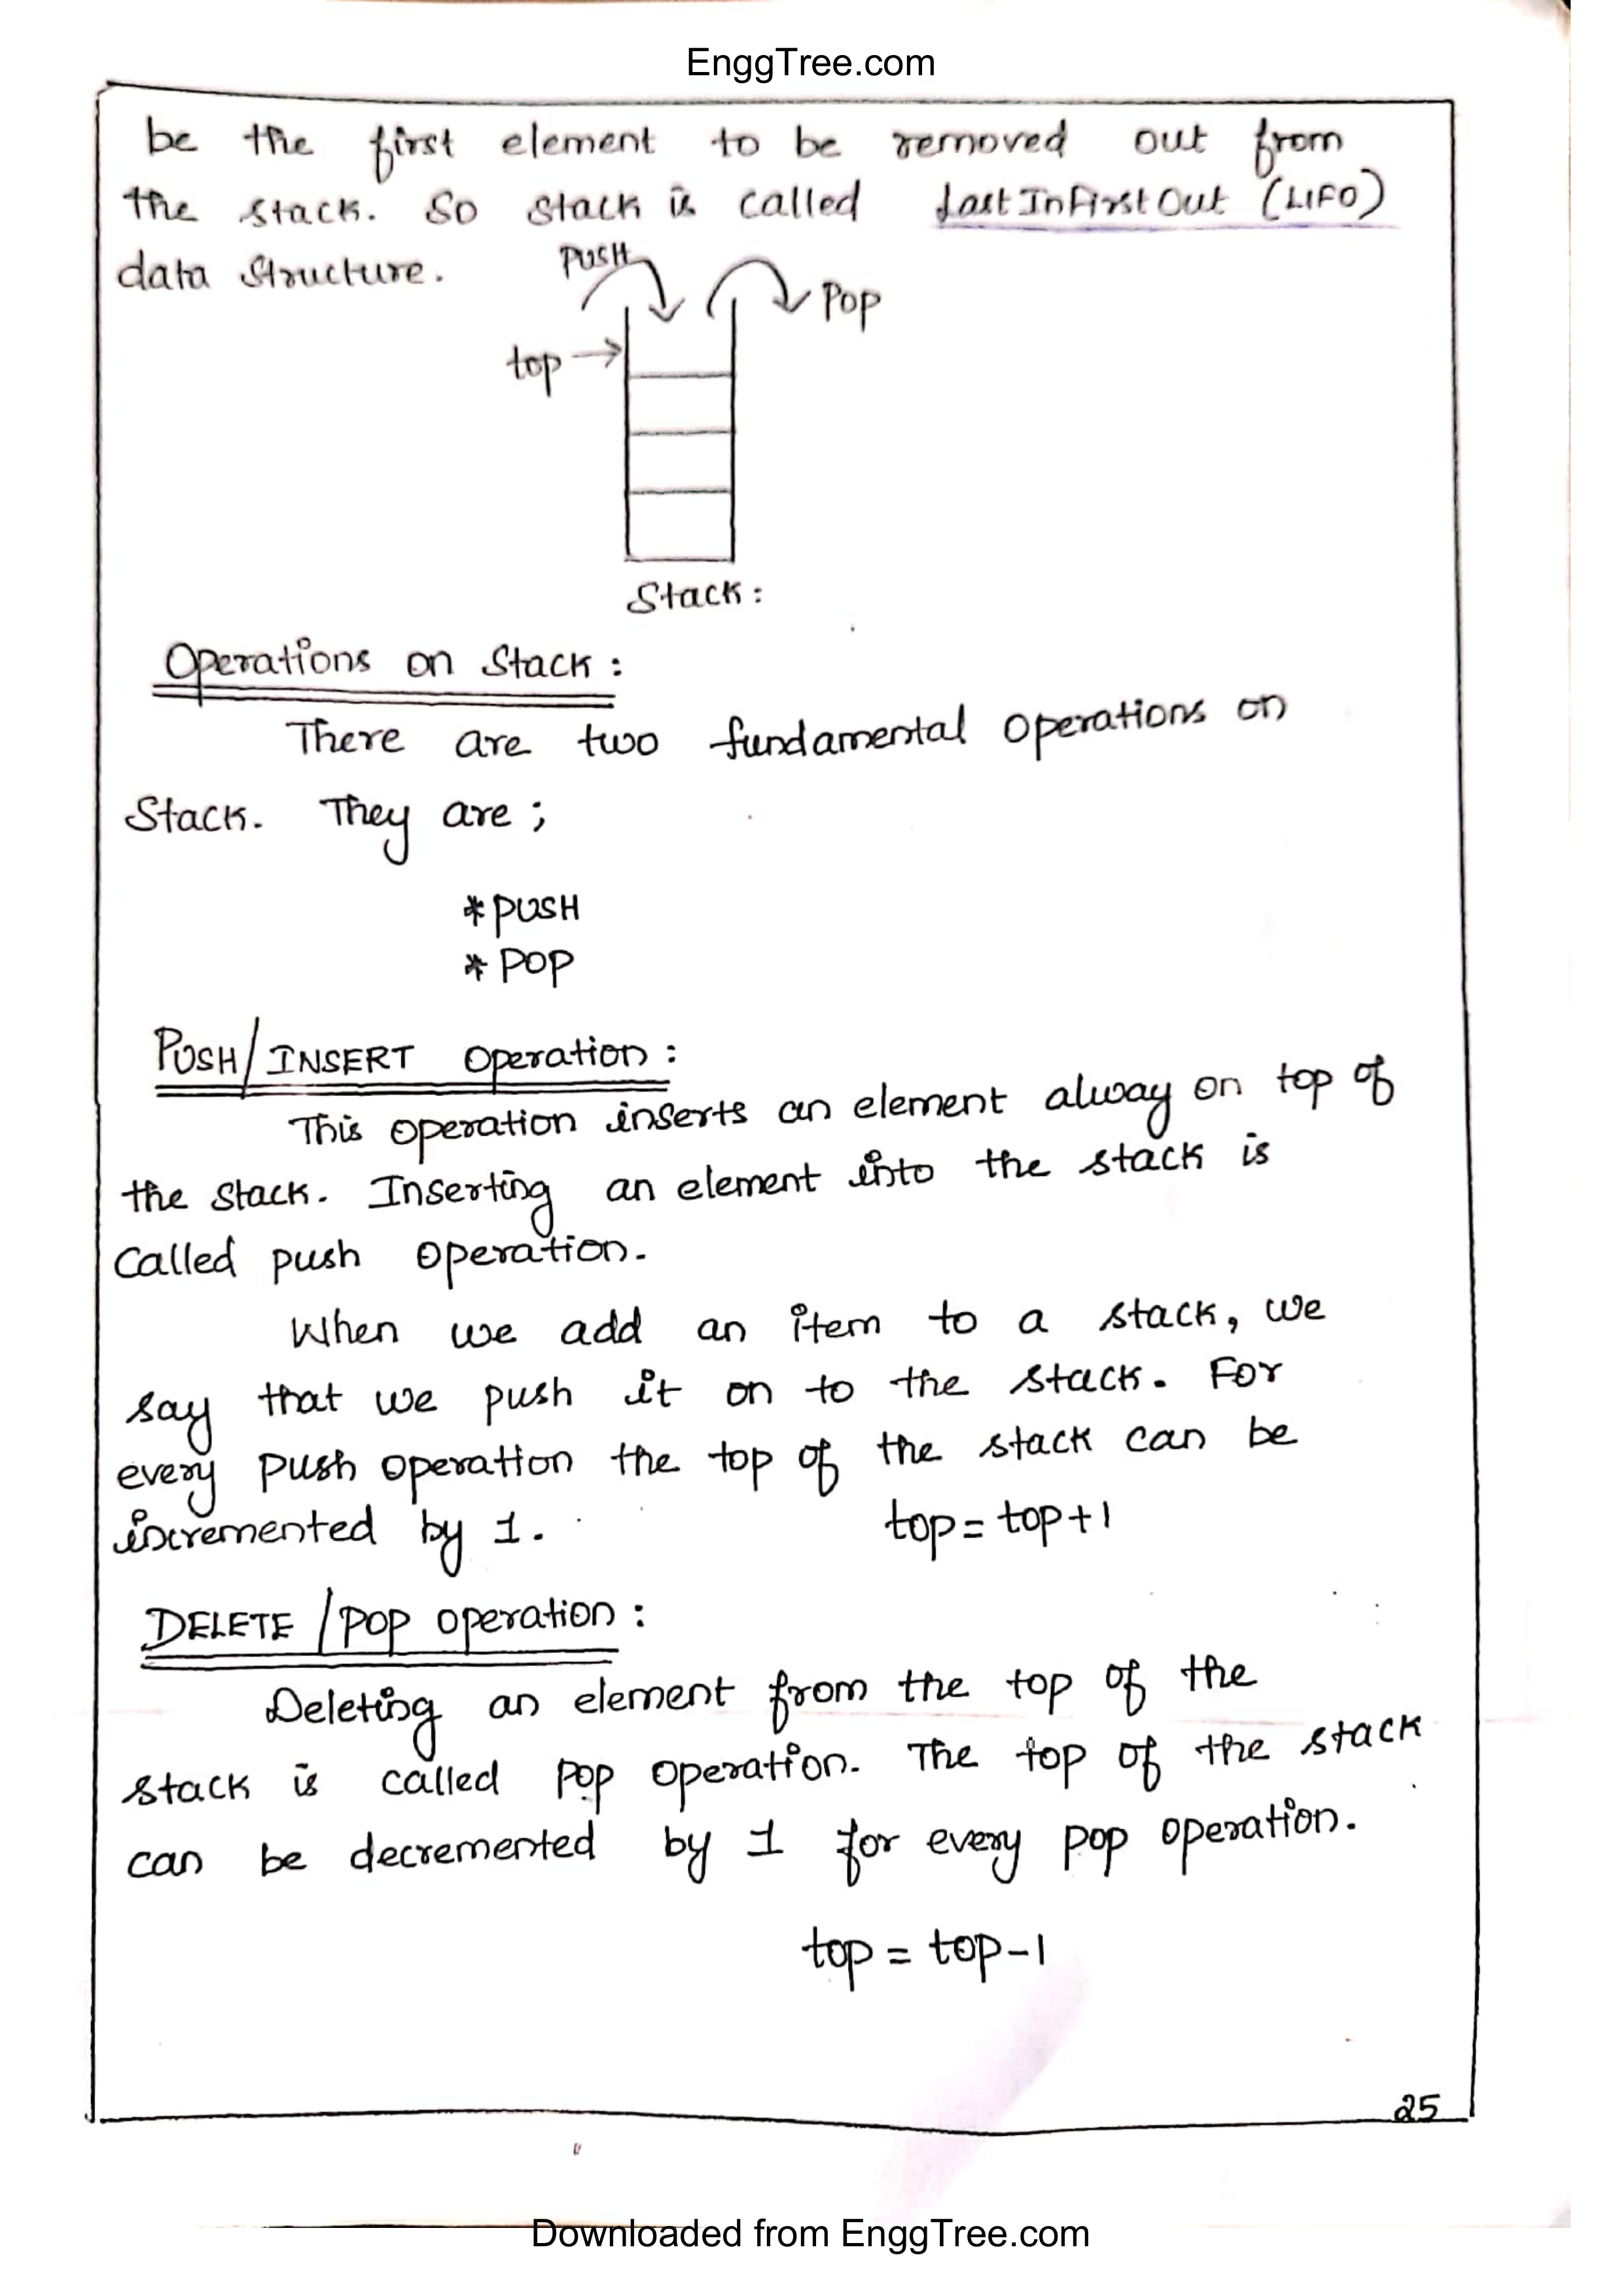 EnggTree.com
be the first element to be removed out from
the stack. So stack is called LastInFirstOut (LIFO)
data structure.
PUSH
Pop
top →
Stack:
Operations on Stack:
There are two fundamental operations on
Stack. They are;
* PUSH
* POP
PUSH/INSERT operation:
This operation inserts an element alway on top of
the stack. Inserting an element into the stack is
called push operation.
When we add an item to a stack, we
say that we push it on to the stack. For
every push operation the top of the stack can be
incremented by 1. top = top+1
DELETE /POP operation:
Deleting an element from the top of the
stack is called pop operation. The top of the stack
can be decremented by 1 for every pop operation.
top = top-1
25
Downloaded from EnggTree.com